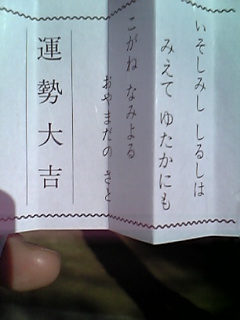 いそしみし しるしは
みえて ゆたかにも
こがね なみよる
おやまだの さと
運勢大吉